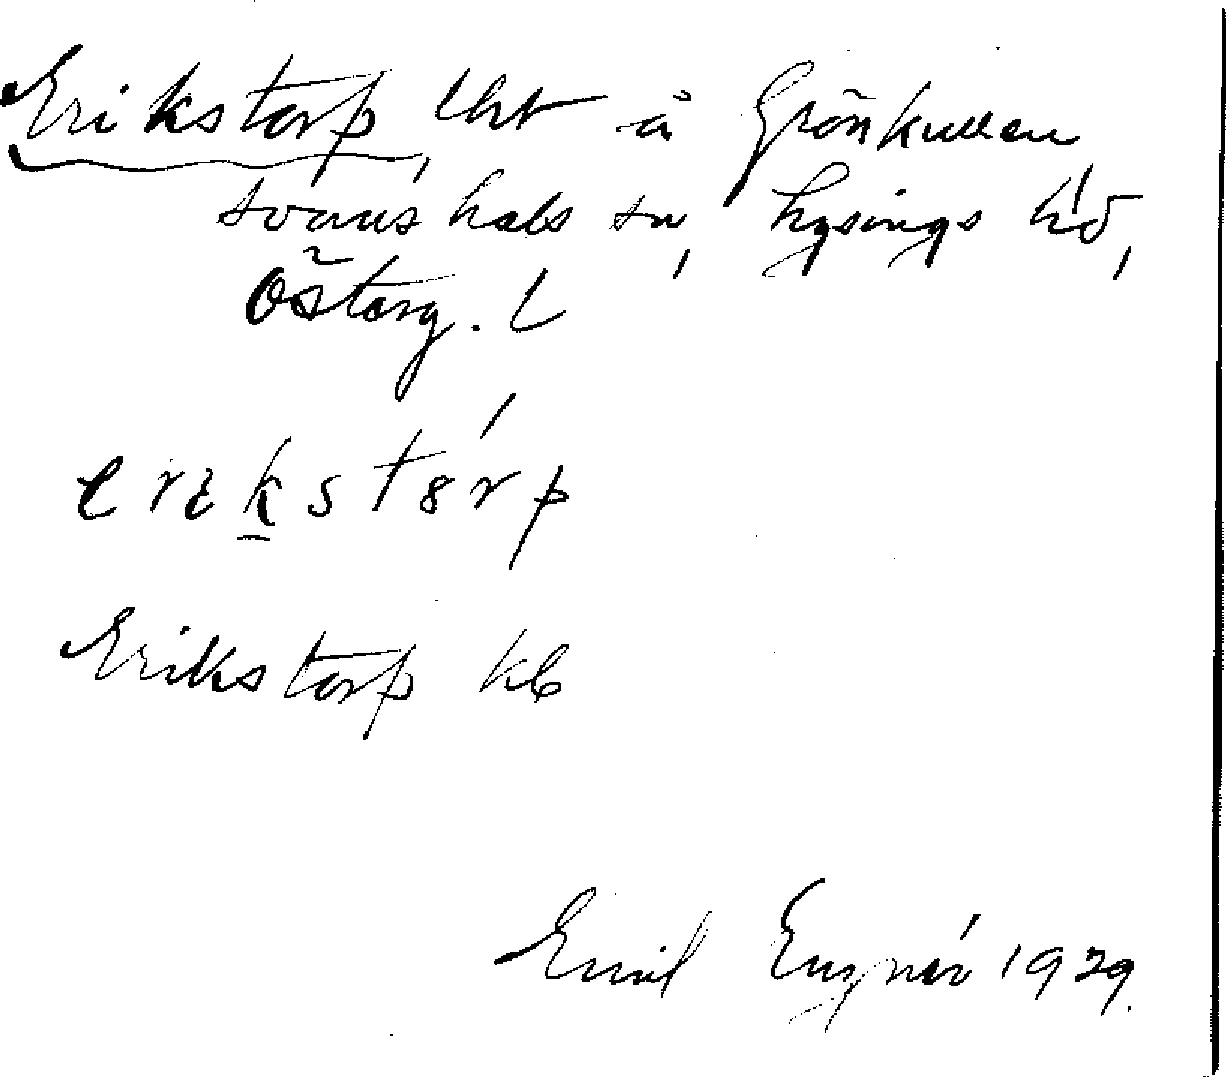 Erikstorp, lht å Grönkullen,
Svanshals sn, Lysings hd,
Österg. L
erikstorp
Erikstorp kb
Emil Engnér 1929.